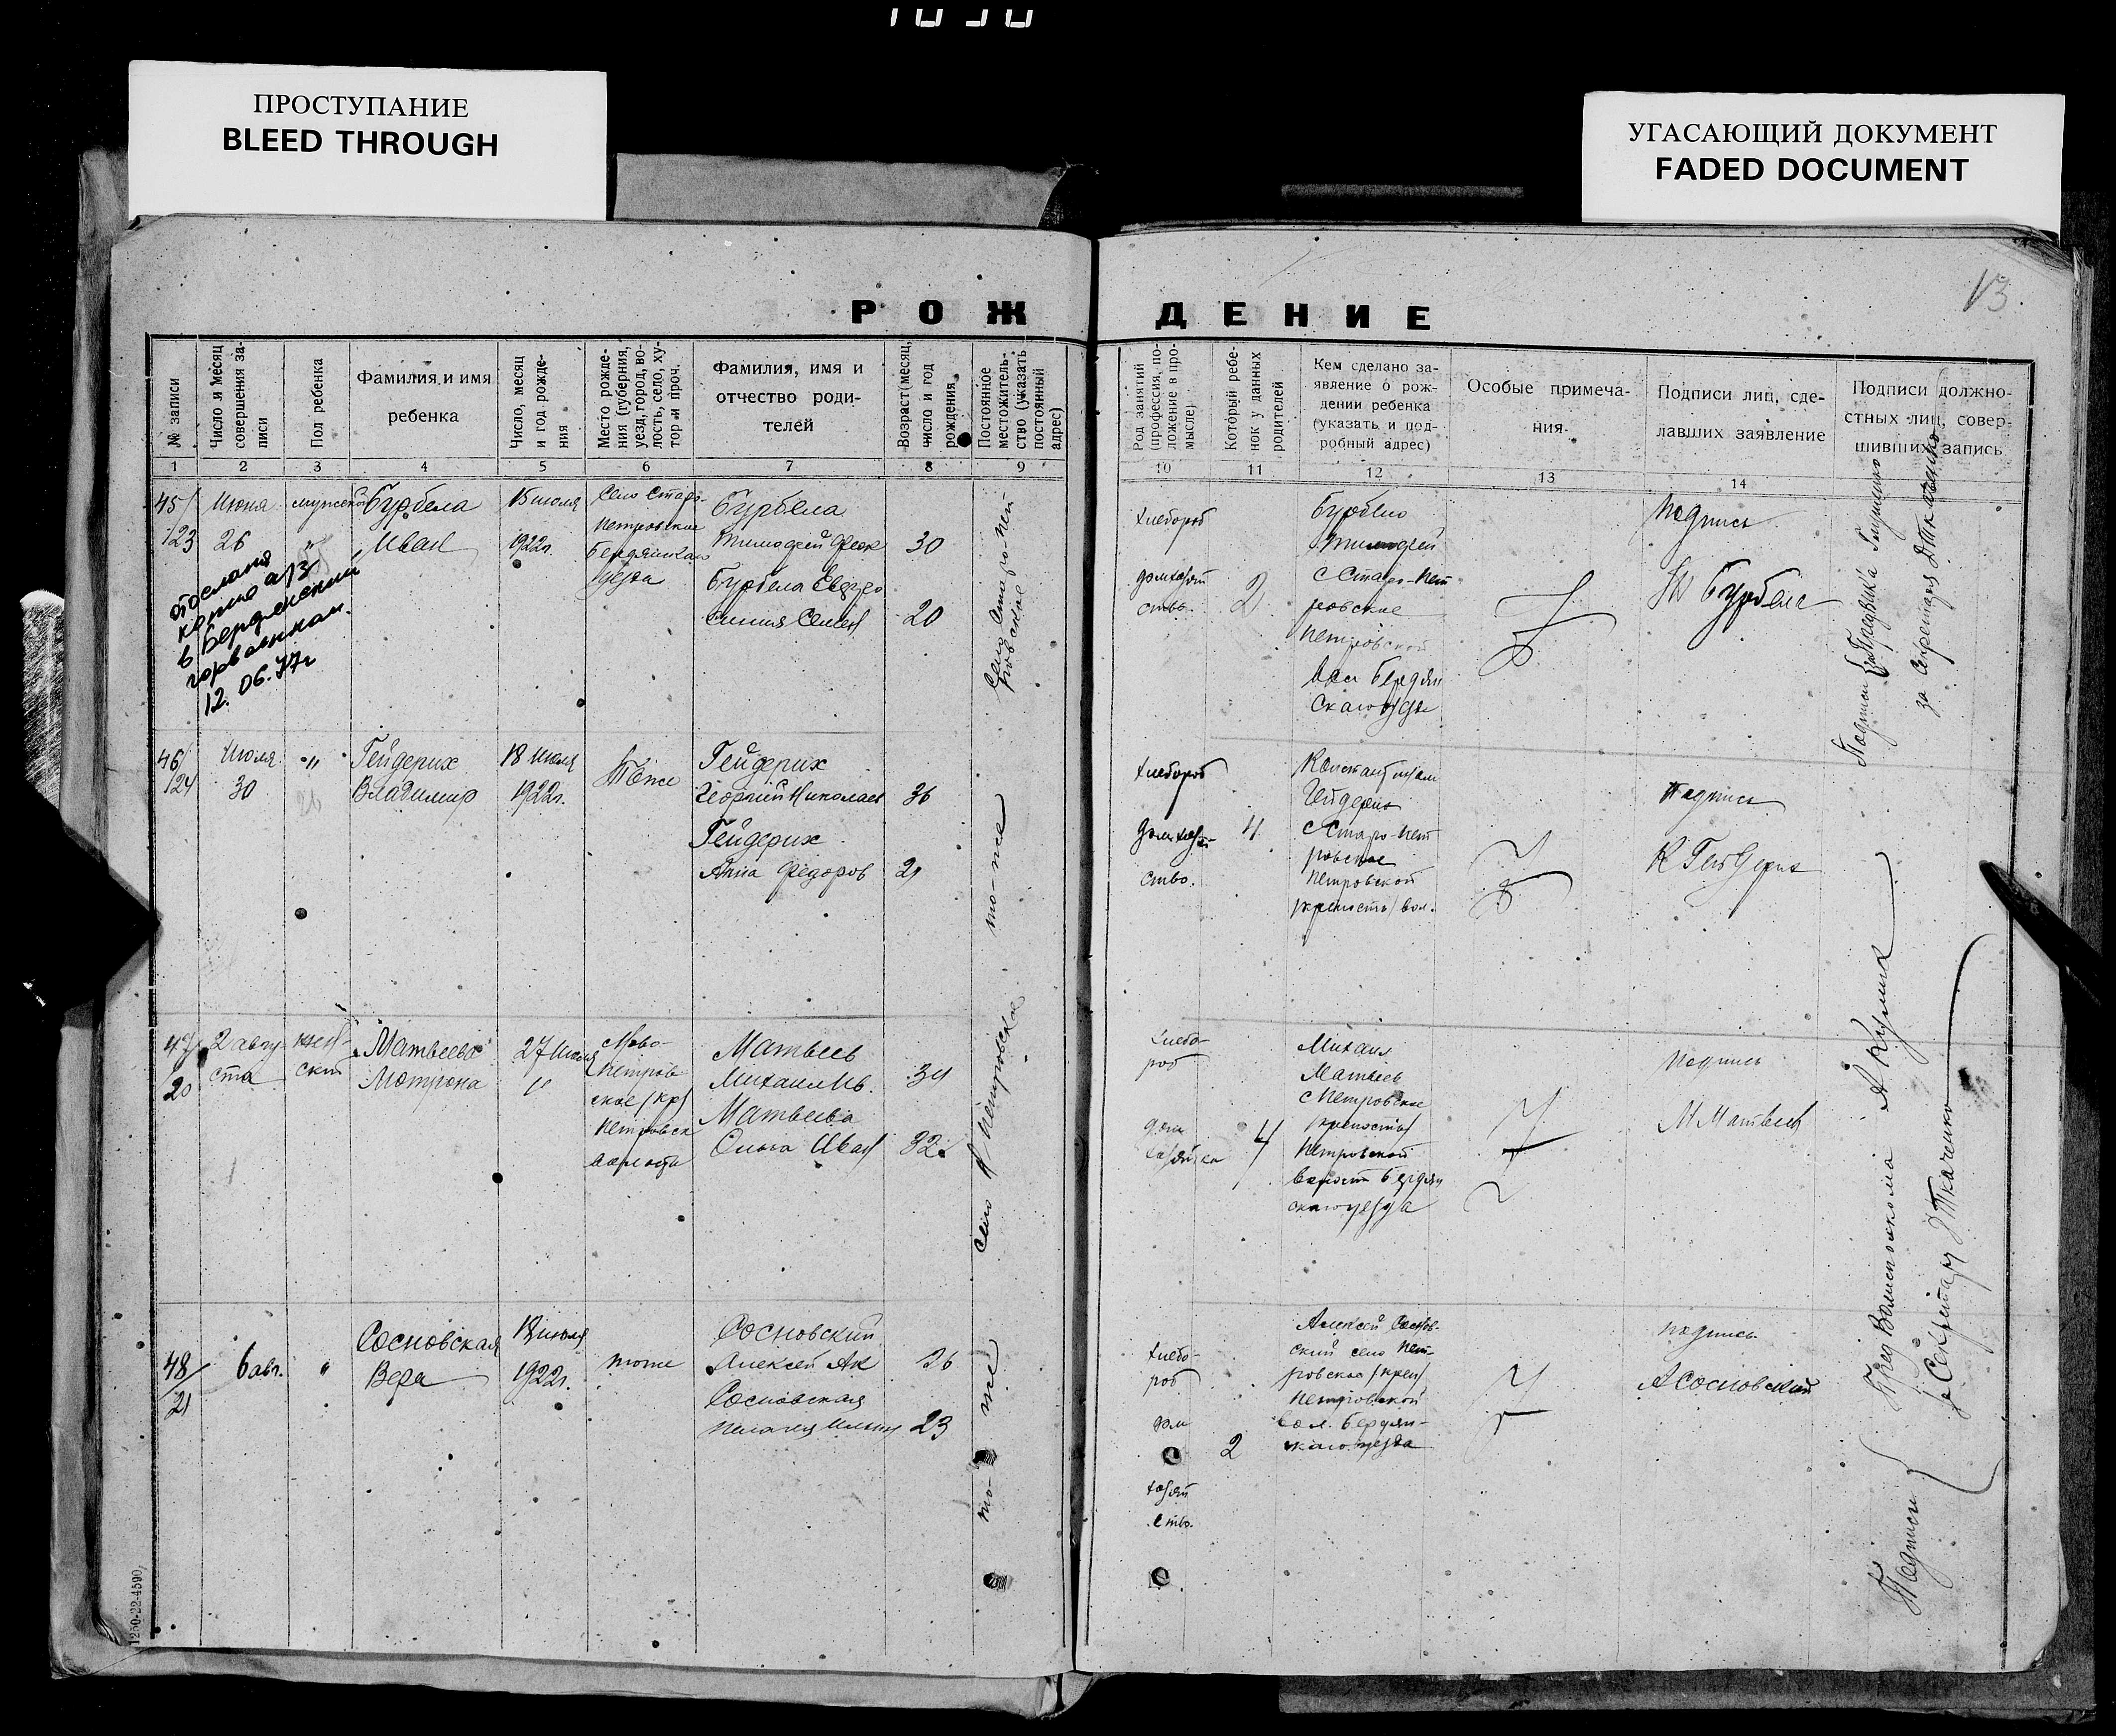 ПРОСТУПАНИЕ
BLEED THROUGH
УГАСАЮЩИЙ ДОКУМЕНТ
FADED DOCUMENT
13
РОЖДЕНИЕ
№ записи
Число и месяц совершения записи
Пол ребенка
Фамилия и имя
ребенка
Число, месяц
и год рожде-
ния
Место рожде-
ния (губерния,
уезд, город, во-
лость, село, ху-
тор и проч.
Фамилия, имя и
отчество роди-
телей
Возраст (месяц,
число и год
рождения
Постоянное
местожитель-
ство (указать
постоянный
адрес)
Род занятий
(профессия, по-
ложение в про-
мысле)
Который ребе-
нок у данных
родителей
Кем сделано за-
явление о рож-
дении ребенка
(указать и под-
робный адрес)
Особые примеча-
ния
Подписи лиц, сде-
лавших заявление
Подписи должно-
стных лиц, совер-
шивших запись
1 2 3 4 5 6 7 8 9
10 11 12 13 14
45/
123
Июня
26
мужской
Бурбела
Иван
15 июля
1922г.
Село Старо-
Петровское
Бердянскаго
уезда
Бурбела
Тимофей
30
Бурбела
20
Село Старо-Пет
ровское
отослана
копия а/з
в Бердянский
горвоенком.
12.06.77г
хлебороб
домхозяй
ство.
2
Бурбело
Тимофей
с Старо-Пет
ровское
Петровской
вол Бердян
скаго уезда
Подпись
Бурбела
46/
124
Июля
30
"
Гейдерих
Владимир
18 июля
1922г.
Тоже
Гейдерих
Георгий Николаев
36
Гейдерих
Анна Федоров
29
то-же
хлебороб
домхозяй
ство.
4
Константин
Гейдерих
с Старо-Пет
ровское
Петровской
/крепость/ вол.
Подпись
К Гейдерих
47/
20
2 авгу-
ста
жен-
ский
Матвеева
Мотрона
27 июля
"
Ново-
Петров
ское /кр/
Петровск
волости
Матвеев
Михаил Ив.
34
Матвеева
Ольга Иван
32
село Н Петровское
хлебо-
роб
дом
хозяйка
4
Михаил
Матвеев
с Петровское
/крепость/
Петровской
волости Бердян
скаго уезда
подпись
М Матвеев
48/
21
6 авг.
"
Сосновская
Вера
18 июля
1922г.
тоже
Сосновский
Алексей Ак
26
Сосновская
Пелагея Ильин
23
то-же
хлебо-
роб
дом
хозяй
ство.
2
Алексей Соснов-
ский село Пет-
ровское /креп/
Петровской
вол. Бердян-
скаго уезда
подпись
А Сосновский
Подписи
за Секретаря Ткаченко
Подписи
Пред Волисполкома
Секретарь Ткаченко
1250-22-4590